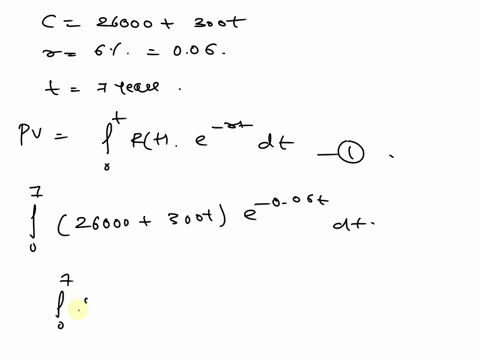 C = 26000 + 300t
r = 6% = 0.06.
t = 7 years.
PV = ∫₀ᵗ R(t). e^{-rt} dt —①.
∫₀⁷ (26000 + 300t) e^{-0.06t} dt.
∫₀⁷